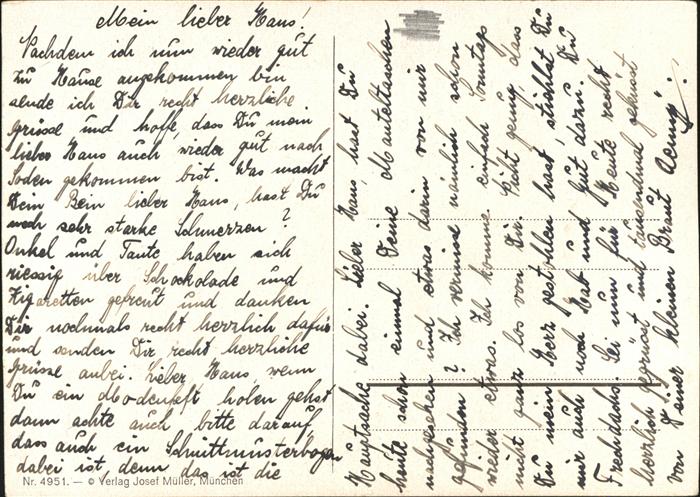 Mein lieber Hans!
Nachdem ich nun wieder gut
zu Hause angekommen bin
sende ich Dir recht herzliche
Grüsse und hoffe, dass Du mein
lieber Hans auch wieder gut nach
Soden gekommen bist. Was macht
Dein Bein lieber Hans, hast Du
noch sehr starke Schmerzen?
Onkel und Tante haben sich
riessig über Schockolade und
Zigaretten gefreut und danken
Dir nochmals recht herzlich dafür
und senden Dir recht herzliche
Grüsse anbei. Lieber Hans wenn
Du ein Modenheft holen gehst
dann achte auch, bitte darauf,
dass auch ein Schnittmusterbogen
dabei ist, denn das ist die
Nr. 4951. — © Verlag Josef Müller, München
Hauptsache dabei. Lieber Hans, hast Du
heute schon einmal Deine Manteltaschen
nachgesehen und etwas darin von mir
gefunden? Ich vermisse nämlich schon
wieder etwas. Ich komme einfach Sonntags
nicht ganz los von Dir. Nicht genug, dass
Du mein Herz gestohlen hast, stiehlst Du
mir auch noch und gut dazu. Du
Frechdachs. Sei nun für Heute recht
herzlich gegrüsst und tausendmal geküsst
von Deiner kleinen Braut